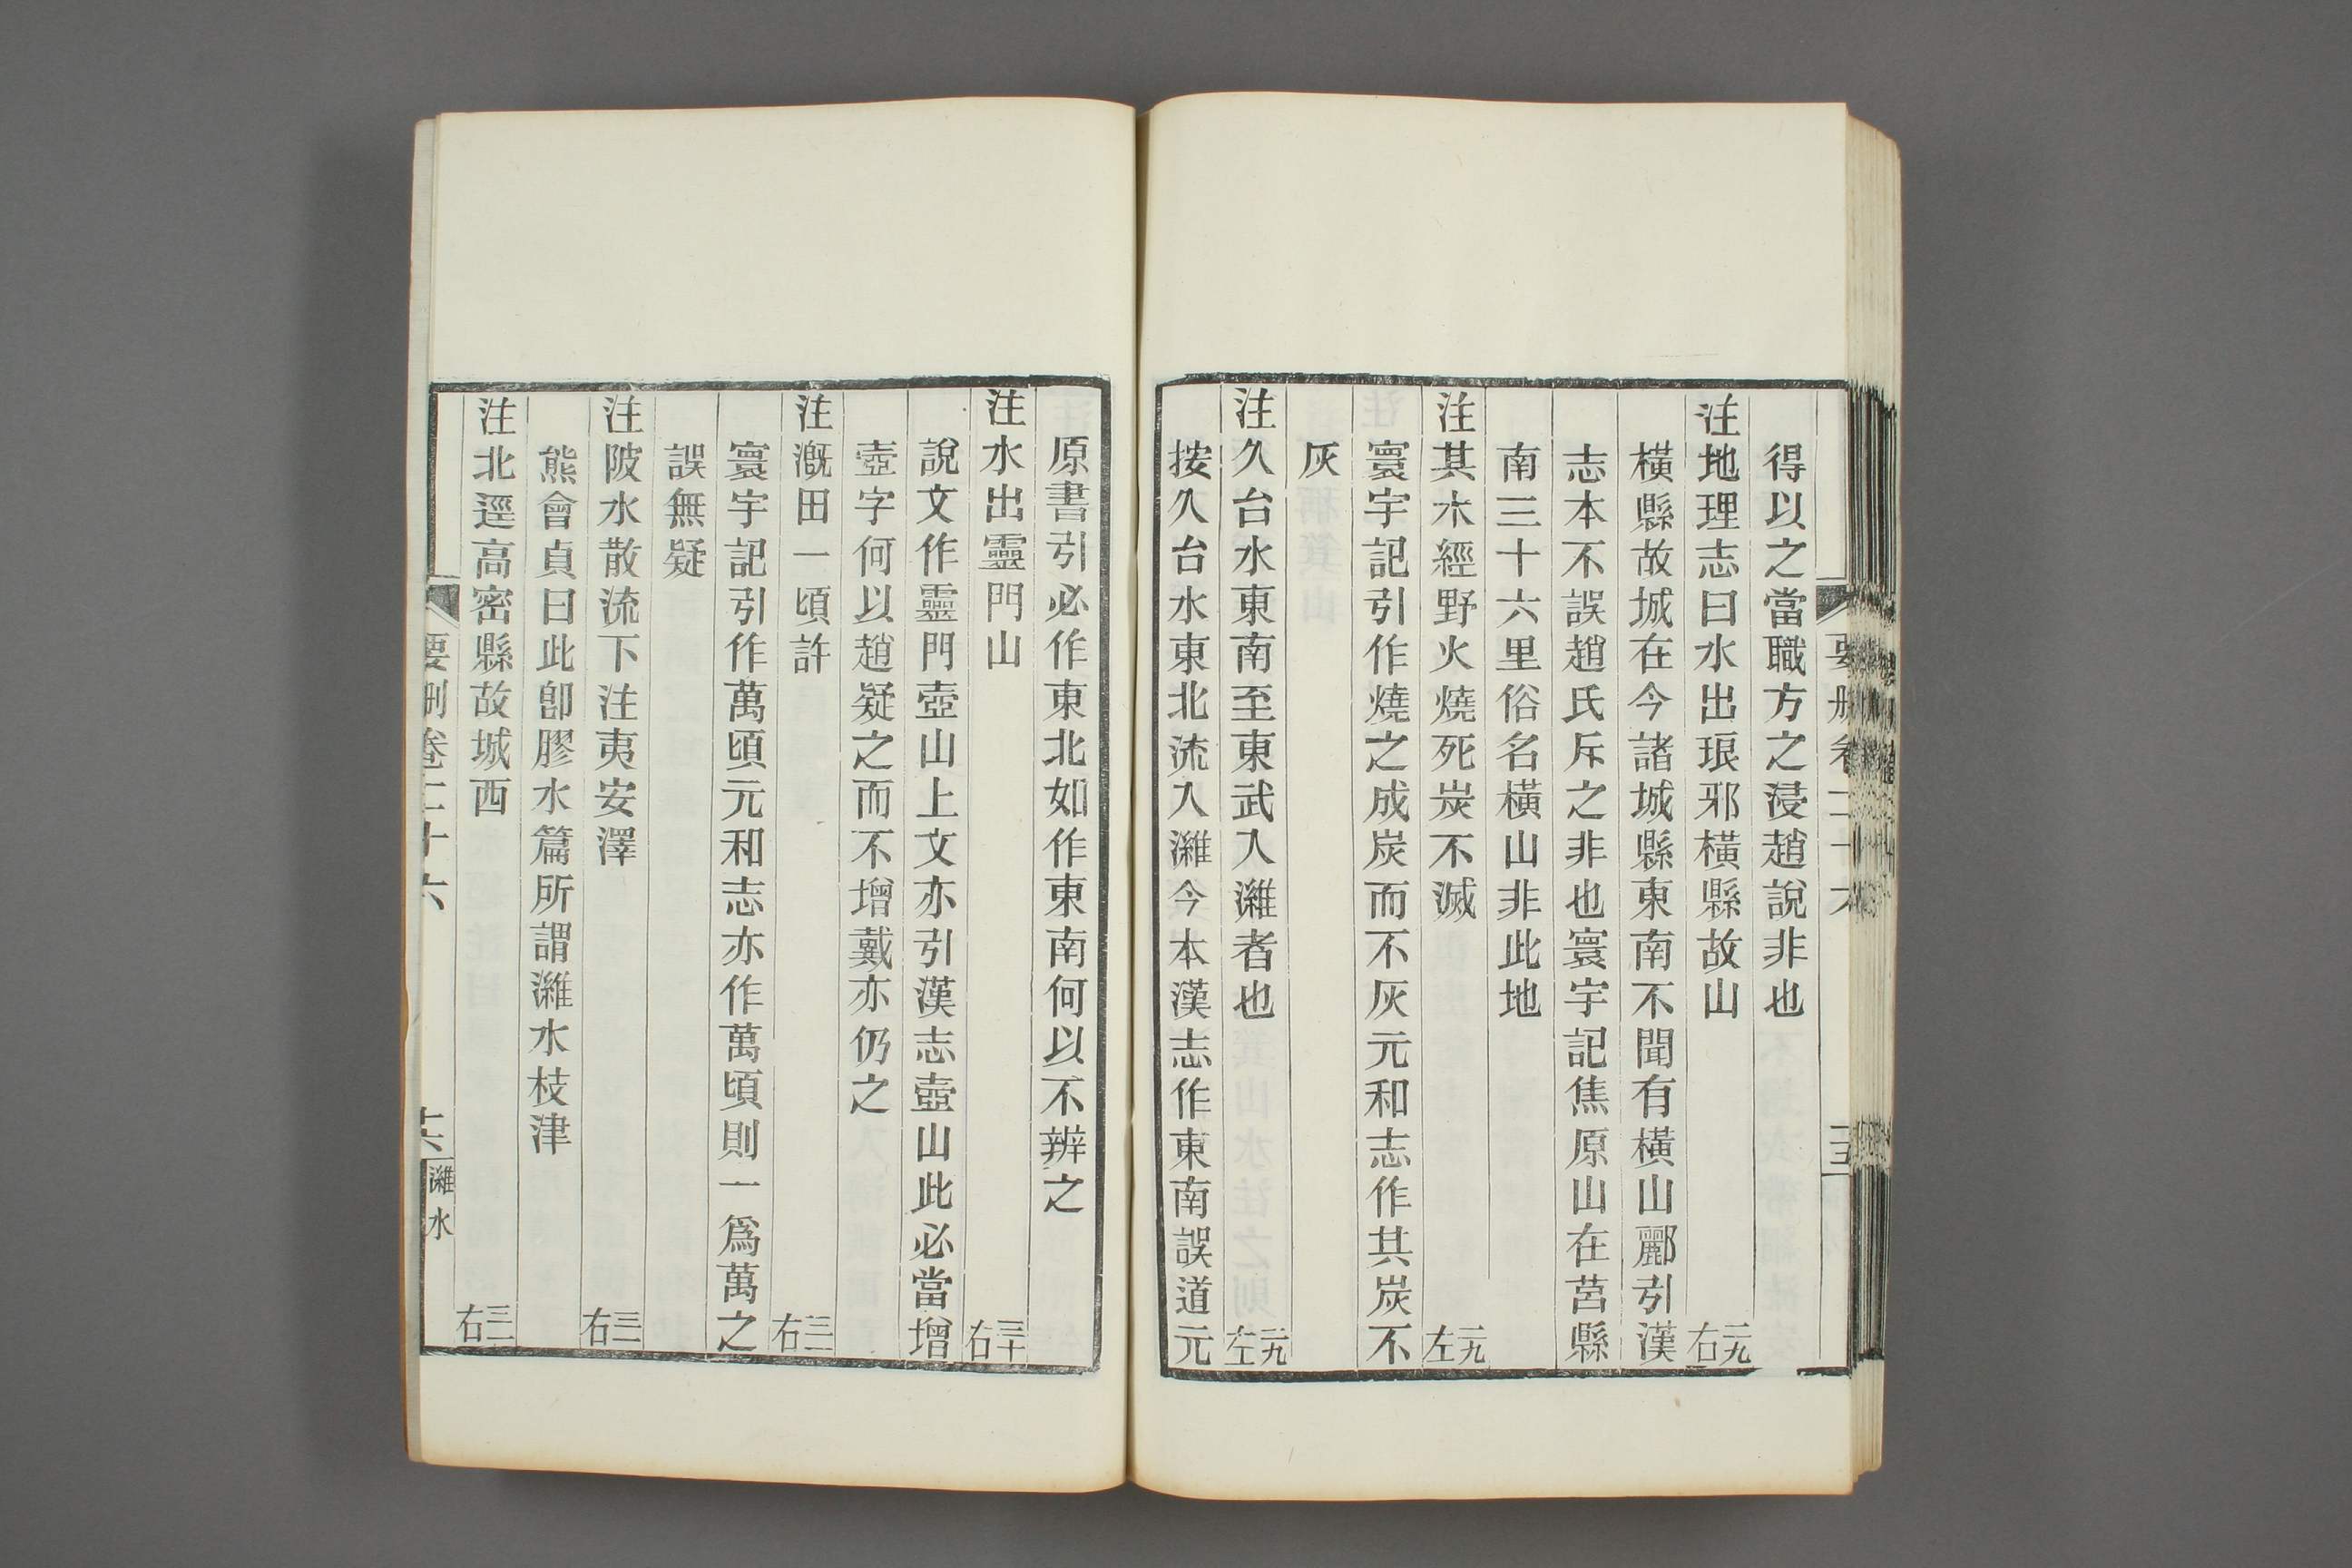 得以之當職方之浸趙說非也
注地理志曰水出琅邪橫縣故山 二九右
橫縣故城在今諸城縣東南不聞有橫山酈引漢
志本不誤趙氏斥之非也寰宇記焦原山在莒縣
南三十六里俗名橫山非此地
注其木經野火燒死炭不滅 二九左
寰宇記引作燒之成炭而不灰元和志作其炭不
灰
注久台水東南至東武入濰者也 二九左
按久台水東北流入濰今本漢志作東南誤道元
原書引必作東北如作東南何以不辨之
注水出靈門山 三十右
說文作靈門壺山上文亦引漢志壺山此必當增
壺字何以趙疑之而不增戴亦仍之
注溉田一頃許 三二右
寰宇記引作萬頃元和志亦作萬頃則一爲萬之
誤無疑
注陂水散流下注夷安澤 三二右
熊會貞曰此卽膠水篇所謂濰水枝津
注北逕高密縣故城西 三二右
要刪卷二十六 十六 濰水